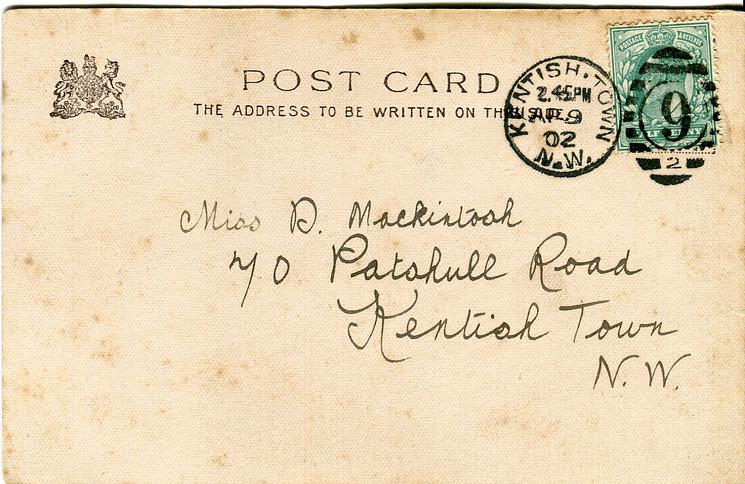 POST CARD
THE ADDRESS TO BE WRITTEN ON THIS SIDE.
POSTAGE & REVENUE
HALFPENNY
KENTISH·TOWN
2.45PM
AP 9
02
N.W.
9
2
Miss D. Mackintosh
70 Patshull Road
Kentish Town
N.W.